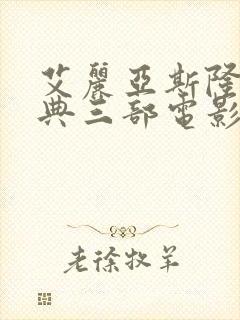 艾麗亞斯隆
典三部電影
老徐牧羊